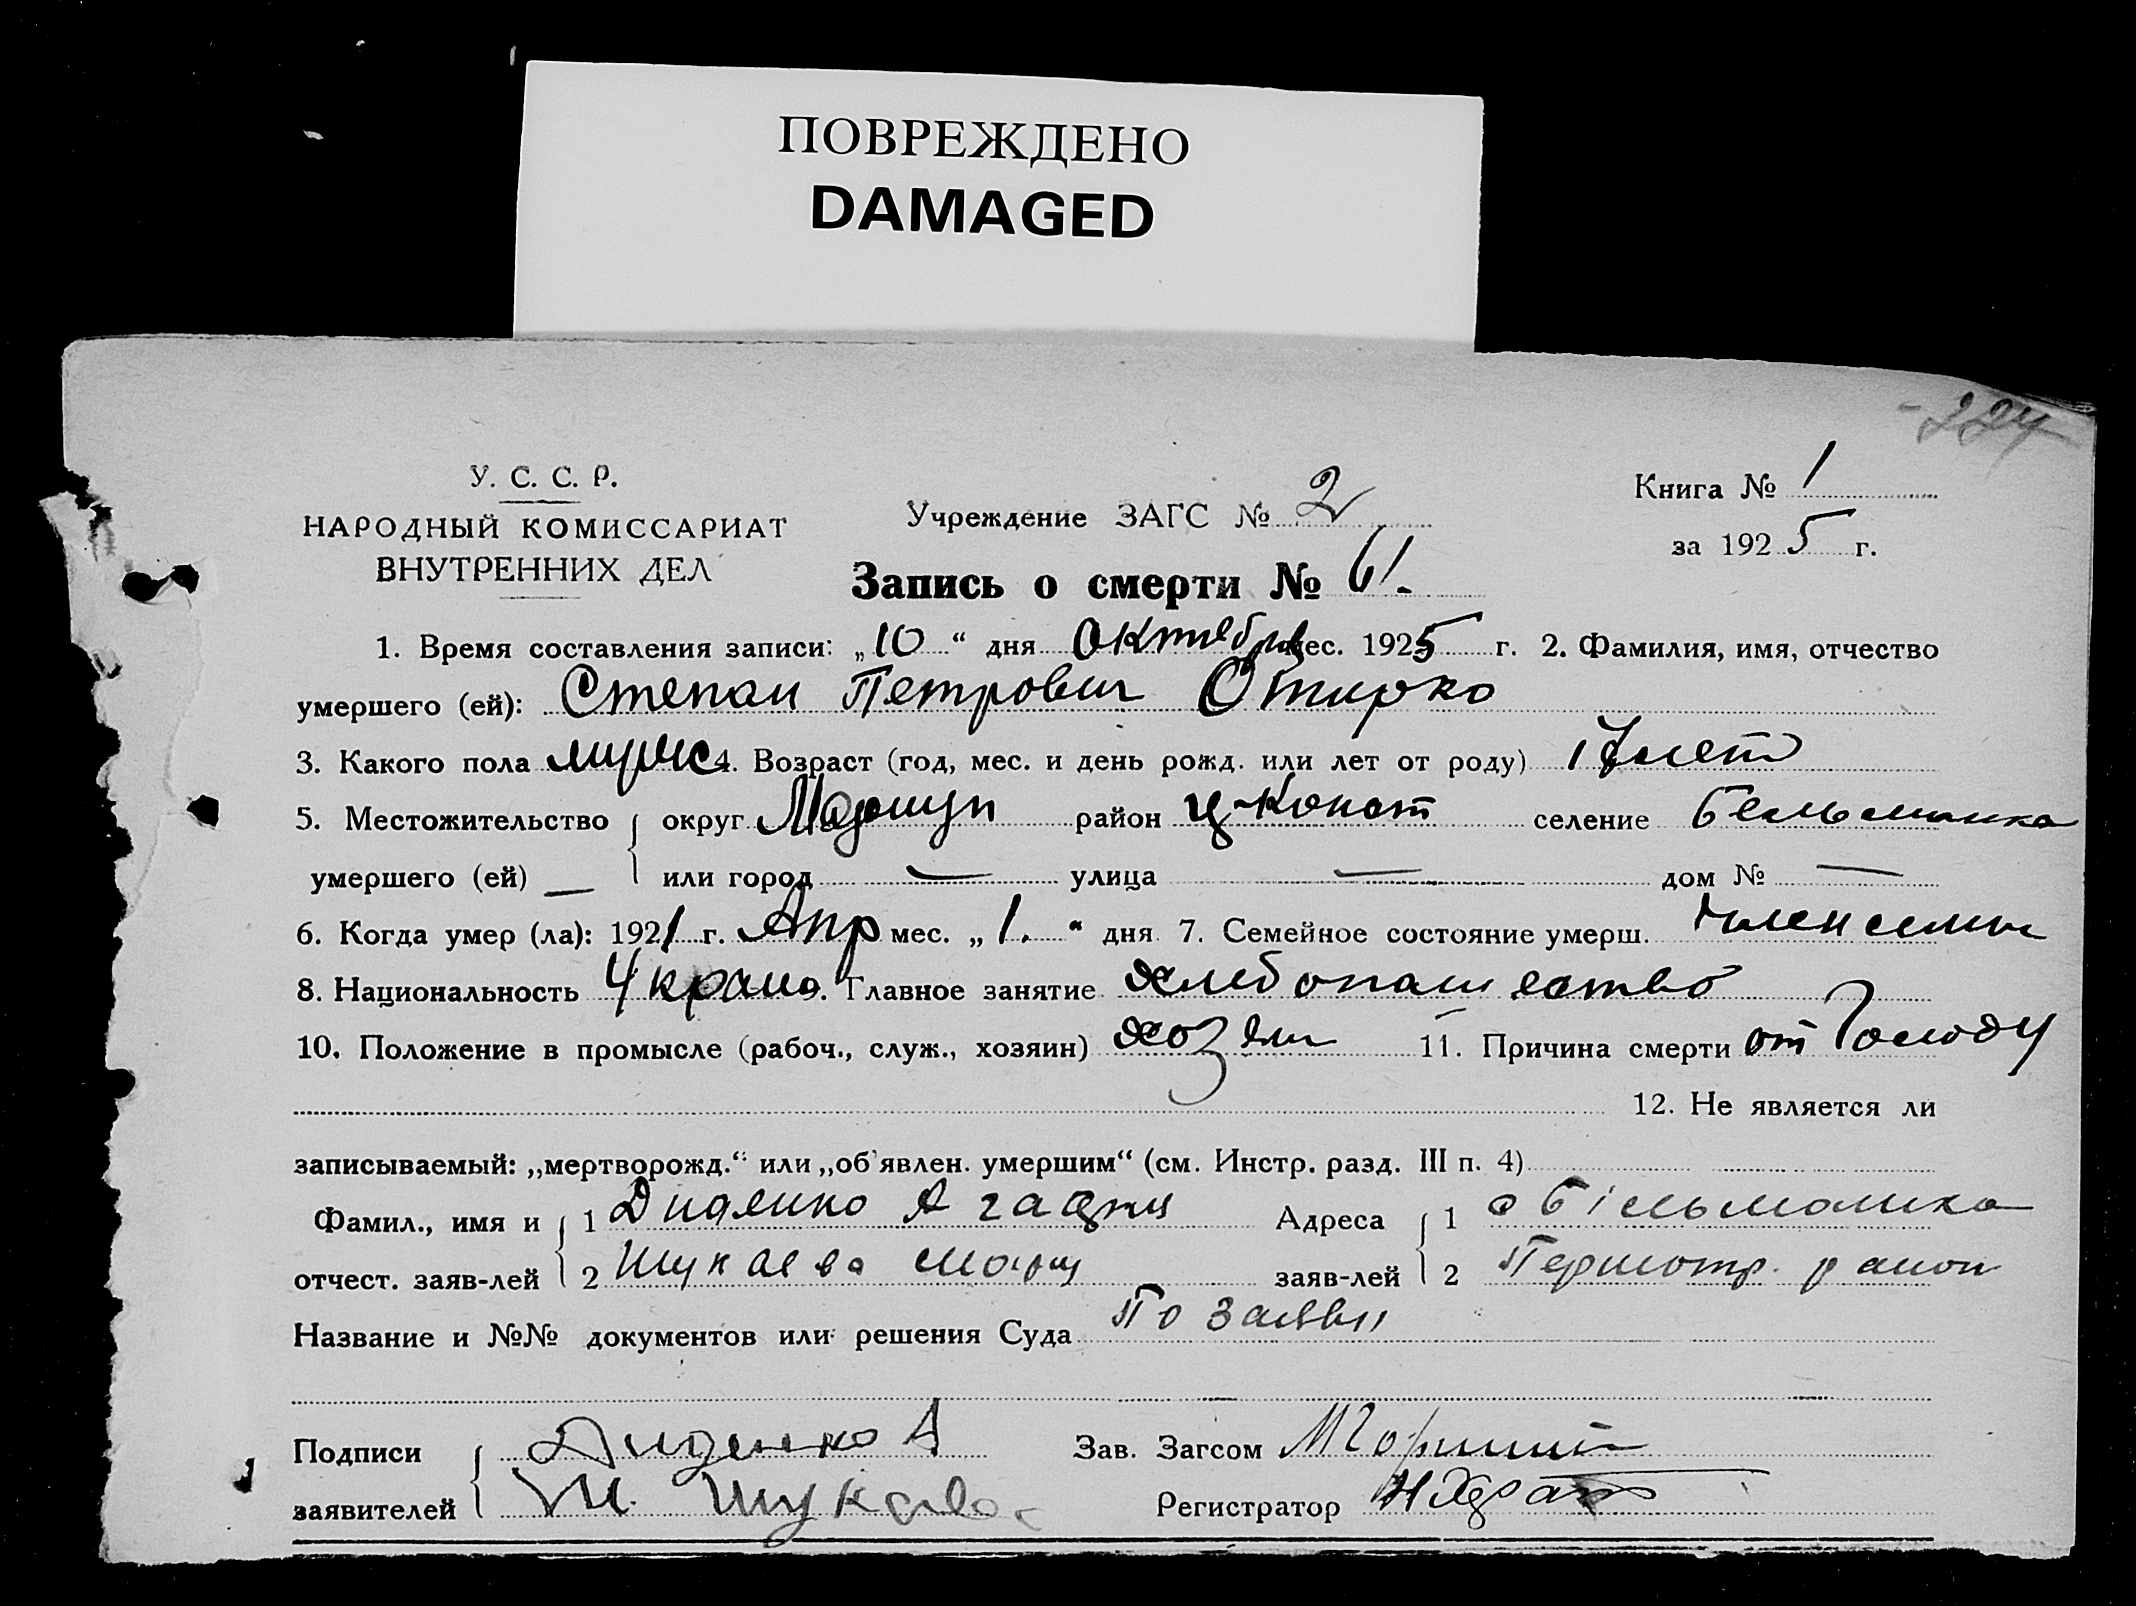 ПОВРЕЖДЕНО
DAMAGED
224
У. С. С. Р.
НАРОДНЫЙ КОМИССАРИАТ
ВНУТРЕННИХ ДЕЛ
Учреждение ЗАГС № 2
Книга № 1
за 1925 г.
Запись о смерти № 61.
1. Время составления записи: „10“ дня Октября мес. 1925 г. 2. Фамилия, имя, отчество
умершего (ей): Степан Петрович Отирко
3. Какого пола мужс 4. Возраст (год, мес. и день рожд. или лет от роду) 17 лет
5. Местожительство округ Мариуп район Ц-Конст селение Бельманка
умершего (ей) — или город — улица — дом № —
6. Когда умер (ла): 1921 г. Апр мес. „1.“ дня 7. Семейное состояние умерш. член семьи
8. Национальность Украин 9. Главное занятие хлебопашество
10. Положение в промысле (рабоч., служ., хозяин) хозяин 11. Причина смерти от Голоду
12. Не является ли
записываемый: „мертворожд.“ или „об'явлен. умершим“ (см. Инстр. разд. III п. 4)
Фамил., имя и 1 Диденко Агафия Адреса 1 с Бiльманка
отчест. заяв-лей 2 Шукаева Мария заяв-лей 2 район
Название и №№ документов или решения Суда По заявл
Подписи Диденко А Зав. Загсом
заявителей М. Шукаева Регистратор